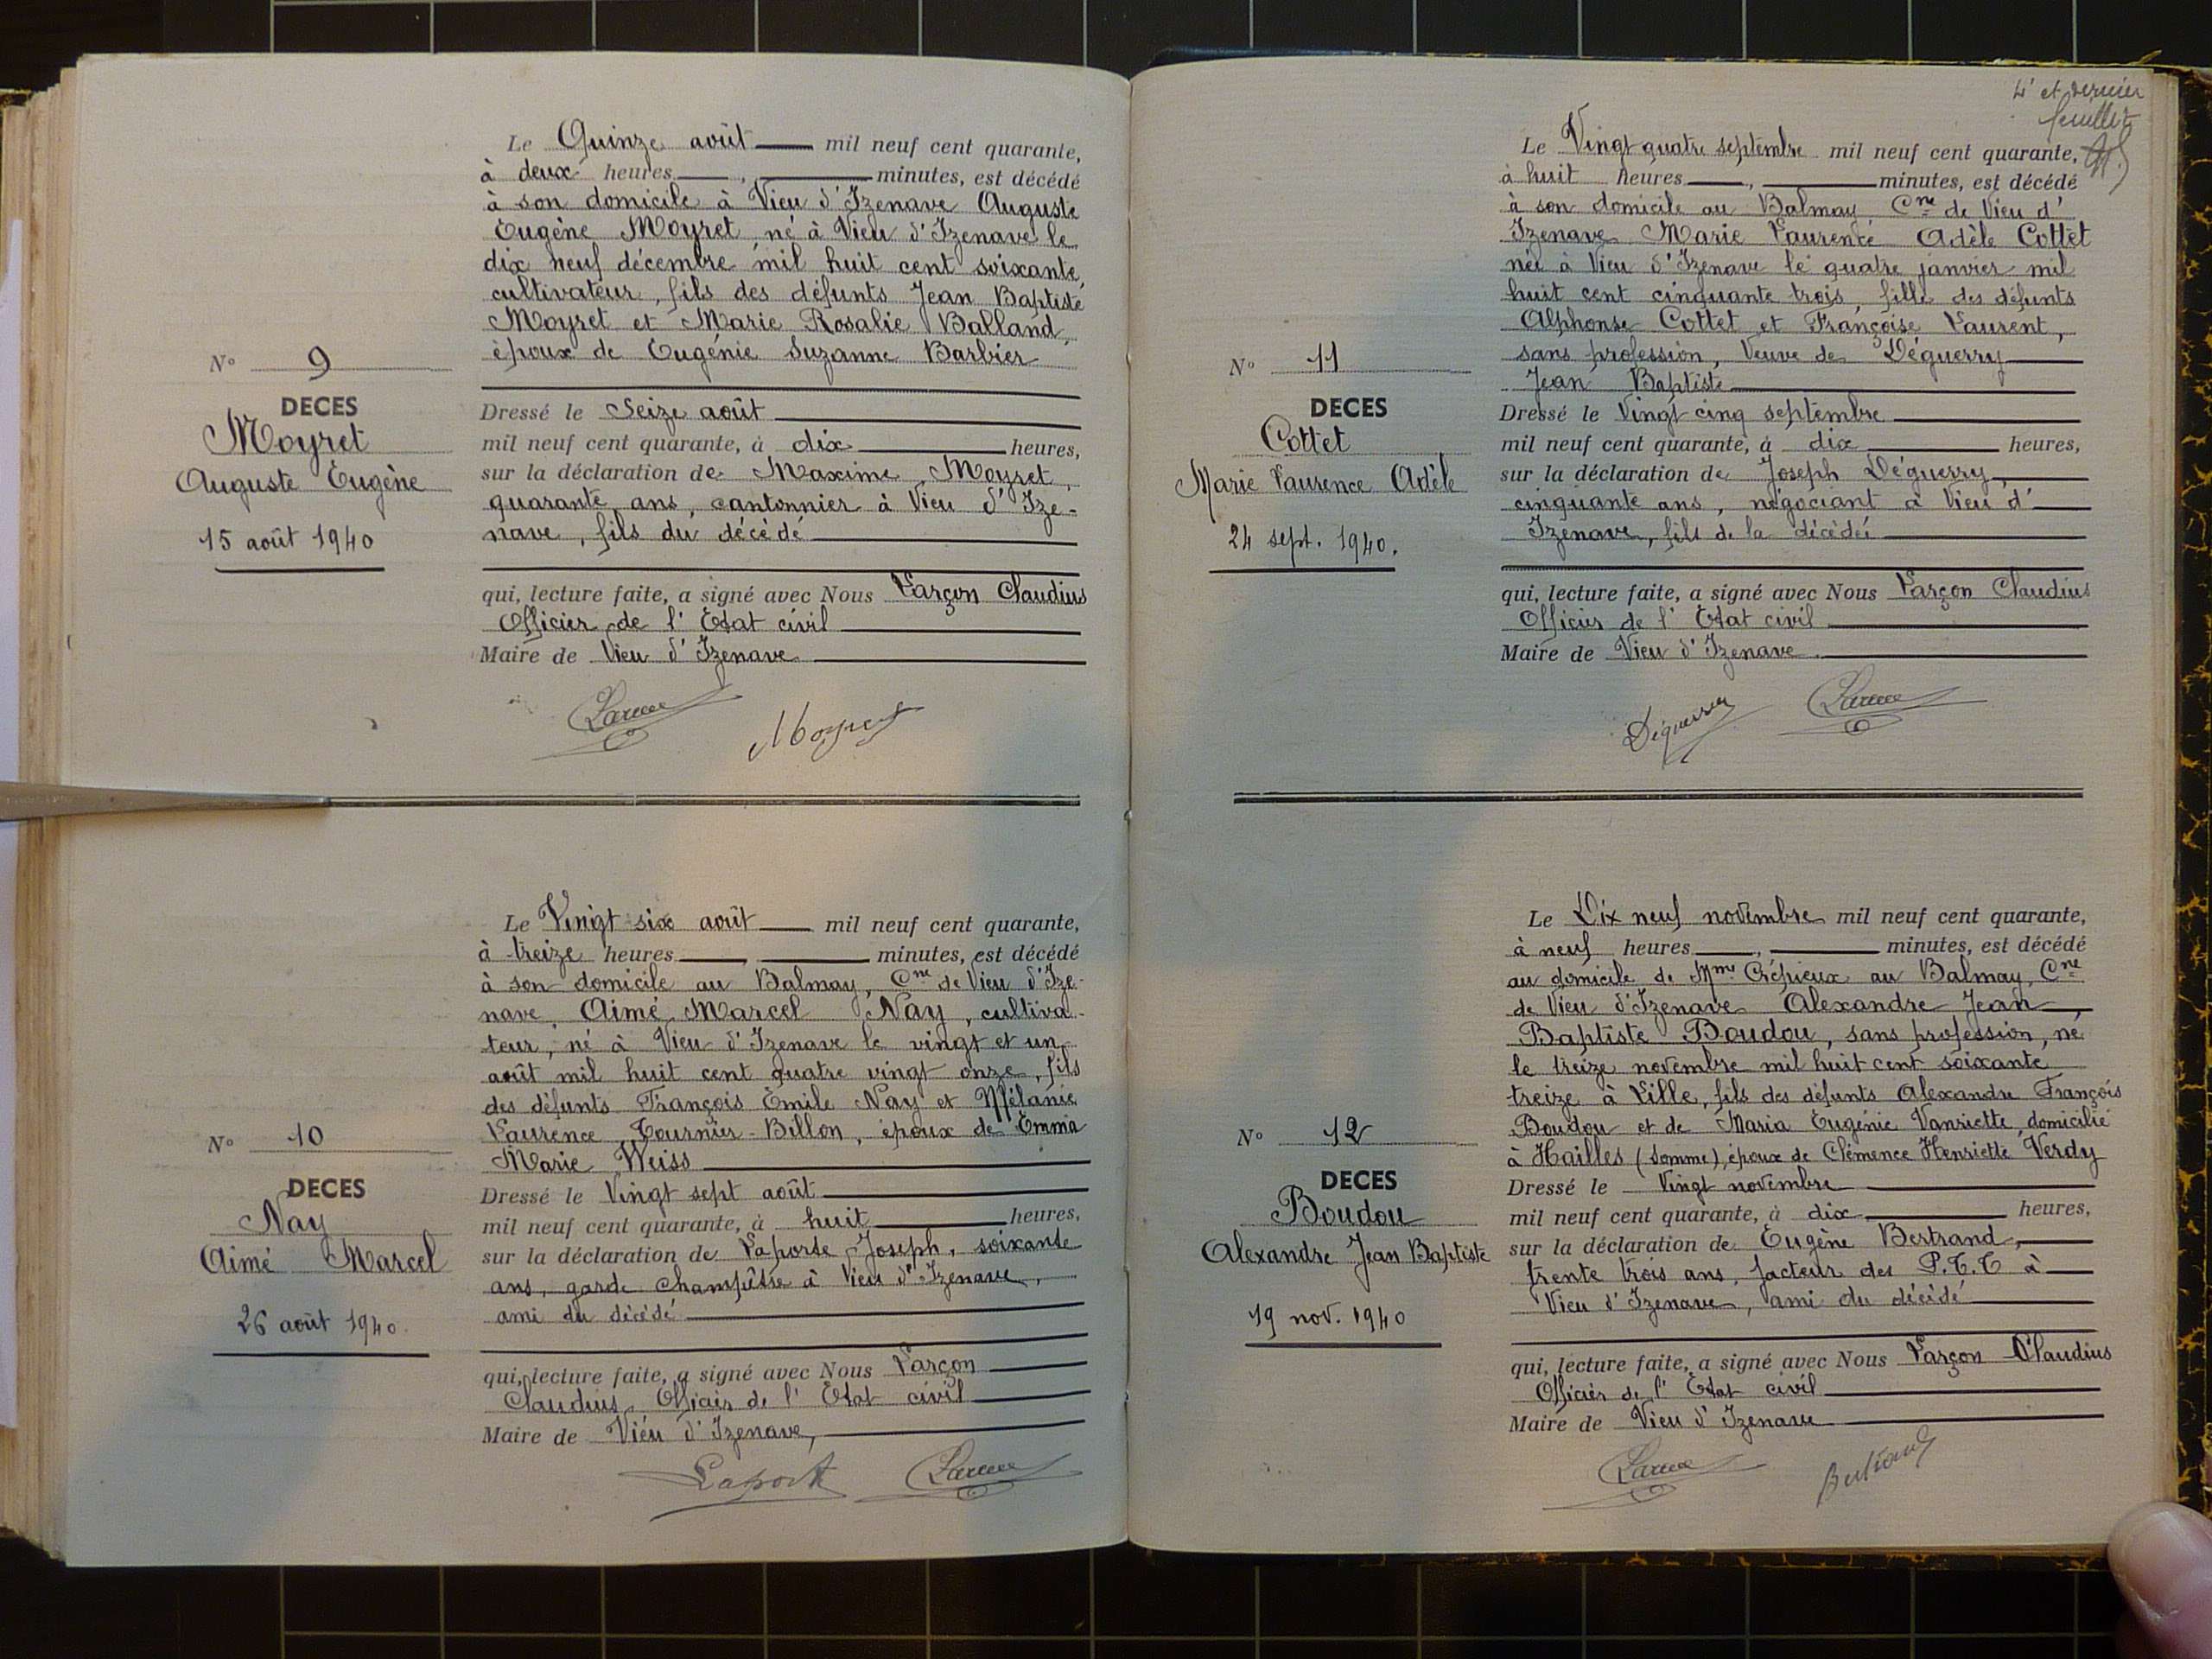 N° 9
DECES
Moyret
Auguste Eugène
15 août 1940
Le Quinze août mil neuf cent quarante,
à deux heures, minutes, est décédé
à son domicile à Vieu d'Izenave Auguste
Eugène Moyret, né à Vieu d'Izenave le
dix neuf décembre mil huit cent soixante,
cultivateur, fils des défunts Jean Baptiste
Moyret et Marie Rosalie Balland,
époux de Eugénie Suzanne Barbier
Dressé le Seize août
mil neuf cent quarante, à dix heures,
sur la déclaration de Maxime Moyret,
quarante ans, cantonnier à Vieu d'Ize-
nave, fils du décédé
qui, lecture faite, a signé avec Nous Larçon Claudius
Officier de l'Etat civil
Maire de Vieu d'Izenave
Moyret
N° 10
DECES
Nay
Aimé Marcel
26 août 1940.
Le Vingt six août mil neuf cent quarante,
à treize heures, minutes, est décédé
à son domicile au Balmay, Cne de Vieu d'Ize-
nave, Aimé Marcel Nay, cultiva-
teur, né à Vieu d'Izenave le vingt et un
août mil huit cent quatre vingt onze, fils
des défunts François Emile Nay et Mélanie
Laurence Tournier-Billon, époux de Emma
Marie Weiss
Dressé le Vingt sept août
mil neuf cent quarante, à huit heures,
sur la déclaration de Laporte Joseph, soixante
ans, garde champêtre à Vieu d'Izenave,
ami du décédé
qui, lecture faite, a signé avec Nous Larçon
Claudius Officier de l'Etat civil
Maire de Vieu d'Izenave,
Laporte
4e et dernier
feuillet
N° 11
DECES
Cottet
Marie Laurence Adèle
24 sept. 1940.
Le Vingt quatre septembre mil neuf cent quarante,
à huit heures, minutes, est décédé
à son domicile au Balmay, Cne de Vieu d'
Izenave Marie Laurence Adèle Cottet
née à Vieu d'Izenave le quatre janvier mil
huit cent cinquante trois, fille des défunts
Alphonse Cottet et Françoise Laurent,
sans profession, Veuve de Déguerry
Jean Baptiste
Dressé le Vingt cinq septembre
mil neuf cent quarante, à dix heures,
sur la déclaration de Joseph Déguerry,
cinquante ans, négociant à Vieu d'
Izenave, fils de la décédée
qui, lecture faite, a signé avec Nous Larçon Claudius
Officier de l'Etat civil
Maire de Vieu d'Izenave.
Déguerry
N° 12
DECES
Boudou
Alexandre Jean Baptiste
19 nov. 1940
Le Dix neuf novembre mil neuf cent quarante,
à neuf heures, minutes, est décédé
au domicile de Mme Crépieux au Balmay, Cne
de Vieu d'Izenave Alexandre Jean
Baptiste Boudou, sans profession, né
le treize novembre mil huit cent soixante
treize à Lille, fils des défunts Alexandre François
Boudou et de Maria Eugénie Vanriette, domicilié
à Hailles (Somme), époux de Clémence Henriette Verdy
Dressé le Vingt novembre
mil neuf cent quarante, à dix heures,
sur la déclaration de Eugène Bertrand,
trente trois ans, facteur des P.T.T à
Vieu d'Izenave, ami du décédé
qui, lecture faite, a signé avec Nous Larçon Claudius
Officier de l'Etat civil
Maire de Vieu d'Izenave
Bertrand